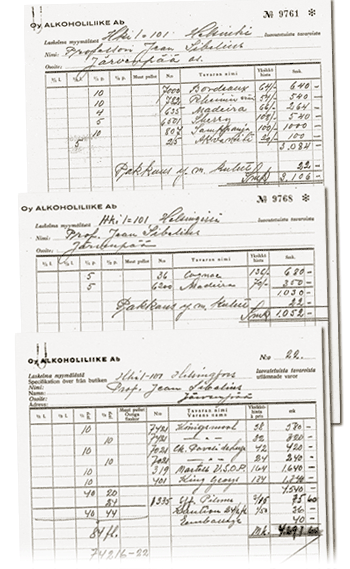 Oy ALKOHOLIIKE Ab № 9761 *
Laskelma myymälästä Hki 1=101 Helsinki laskutetuista tavaroista
Nimi: Professori Jean Sibelius
Osoite: Järvenpää as.
1/1 p. 1/2 p. Muut pullot No Tavaran nimi Yksikköhinta Smk.
10 7000 Bordeaux 64/- 640 -
10 762 Rheinwein 54/- 540 -
4 635 Madeira 66/- 264 -
5 6501 Sherry 108/- 540 -
10 807 100/- 1000 -
5 215 20/- 100 -
3.084 -
Pakkaus y.m. kulut 22 -
Smk 3.106 -
Oy ALKOHOLIIKE Ab № 9768 *
Laskelma myymälästä Hki 1=101 Helsingissä laskutetuista tavaroista
Nimi: Prof. Jean Sibelius
Osoite: Järvenpää
1/1 p. 1/2 p. Muut pullot No Tavaran nimi Yksikköhinta Smk.
5 36 Cognac 136/- 680 -
5 6200 Madeira 70/- 350 -
1030 -
Pakkaus y.m. kulut 22 -
Smk 1.052 -
Oy ALKOHOLIIKE Ab N:o 22.
Laskelma myymälästä Hki 1-101 Helsingfors laskutetuista tavaroista
Specifikation över från butiken utlämnade varor
Nimi: Prof. Jean Sibelius
Namn:
Osoite: Järvenpää
Adress:
Muut pullot Övriga flaskor No Tavaran nimi Varans namn Yksikköhinta à pris mk
10 7421 Königsmosel 38 380 -
10 7421 - " - 32 320 -
10 7021 42 420 -
10 7021 - " - 24 240 -
10 319 Martell V.S.O.P. 164 1.640 -
10 401 King George 184 1.840 -
40 20 4540 -
24 8335 75 60
40 44 36 -
Emballage 40 -
84 fl. Mk. 4.691 60
74216-22